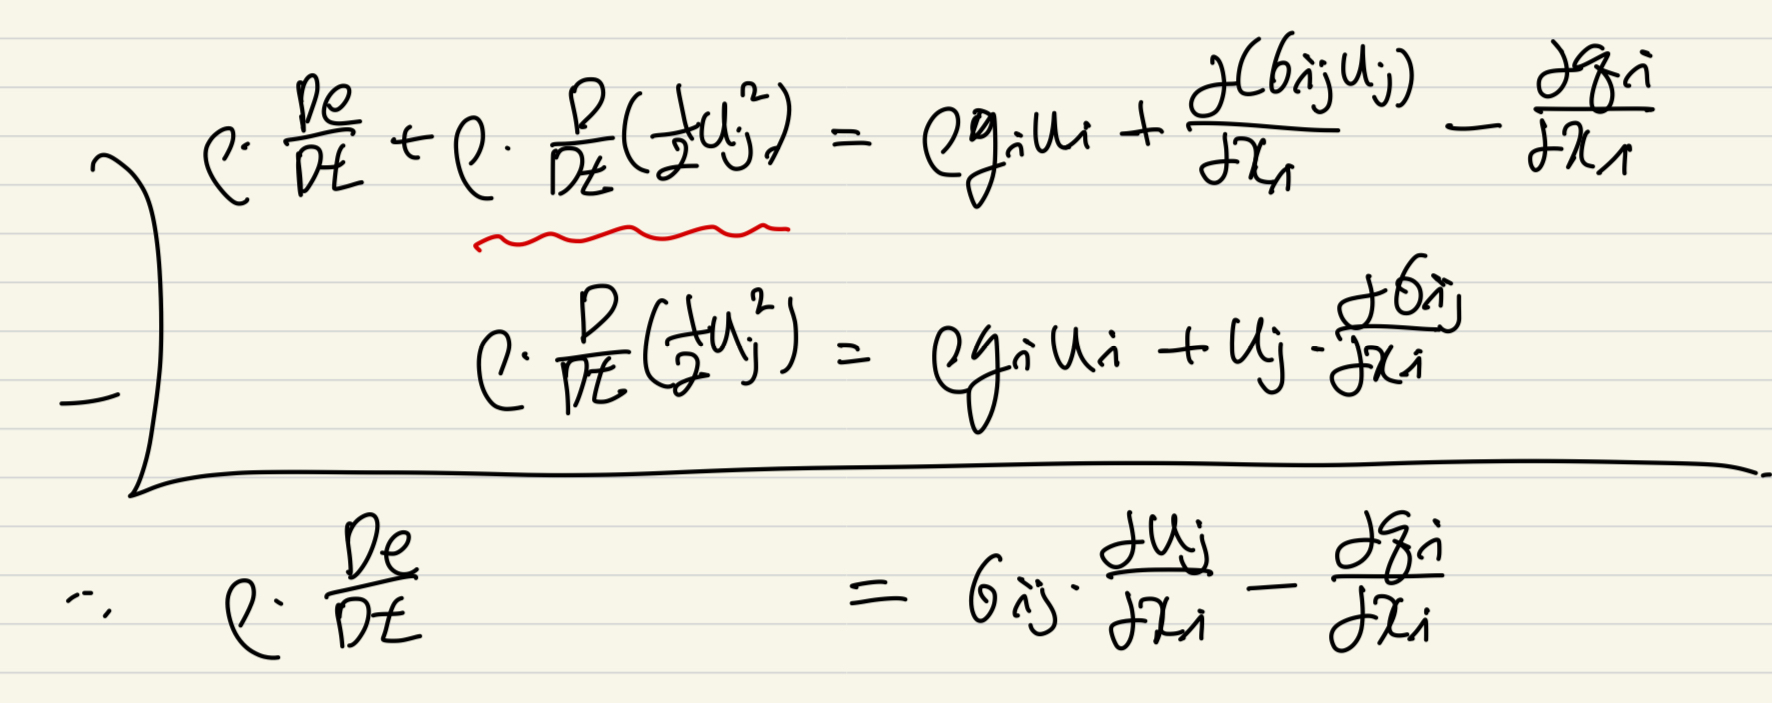 ρ · De/Dt + ρ · D/Dt (1/2 u_j²) = ρ g_i u_i + ∂(σ_ij u_j)/∂x_i − ∂q_i/∂x_i
− ρ · D/Dt (1/2 u_j²) = ρ g_i u_i + u_j · ∂σ_ij/∂x_i
∴ ρ · De/Dt = σ_ij · ∂u_j/∂x_i − ∂q_i/∂x_i